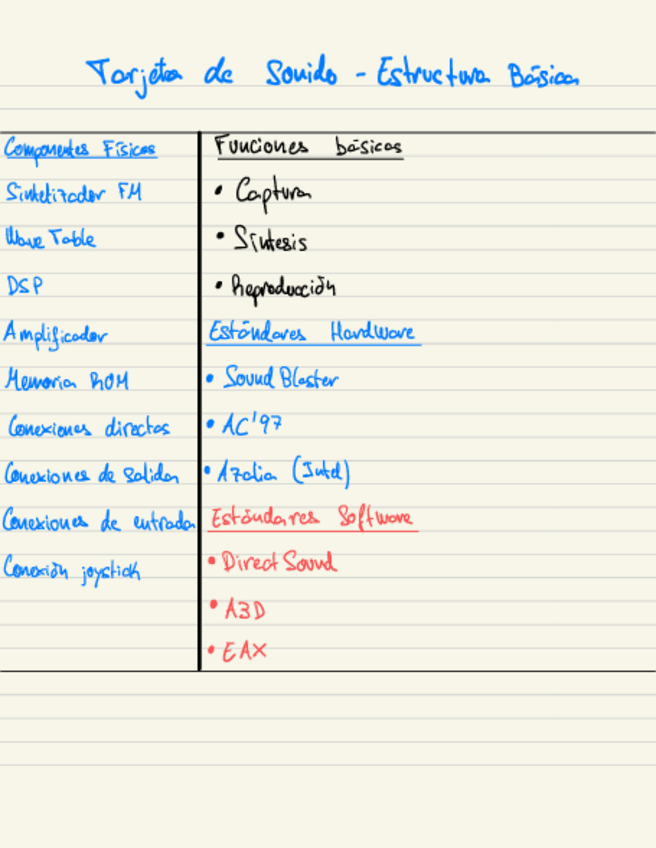 Tarjeta de Sonido - Estructura Básica
Componentes Físicos
Sintetizador FM
Wave Table
DSP
Amplificador
Memoria ROM
Conexiones directas
Conexiones de salida
Conexiones de entrada
Conexión joystick
Funciones básicas
• Captura
• Síntesis
• Reproducción
Estándares Hardware
• Sound Blaster
• AC'97
• Azalia (Intel)
Estándares Software
• Direct Sound
• A3D
• EAX